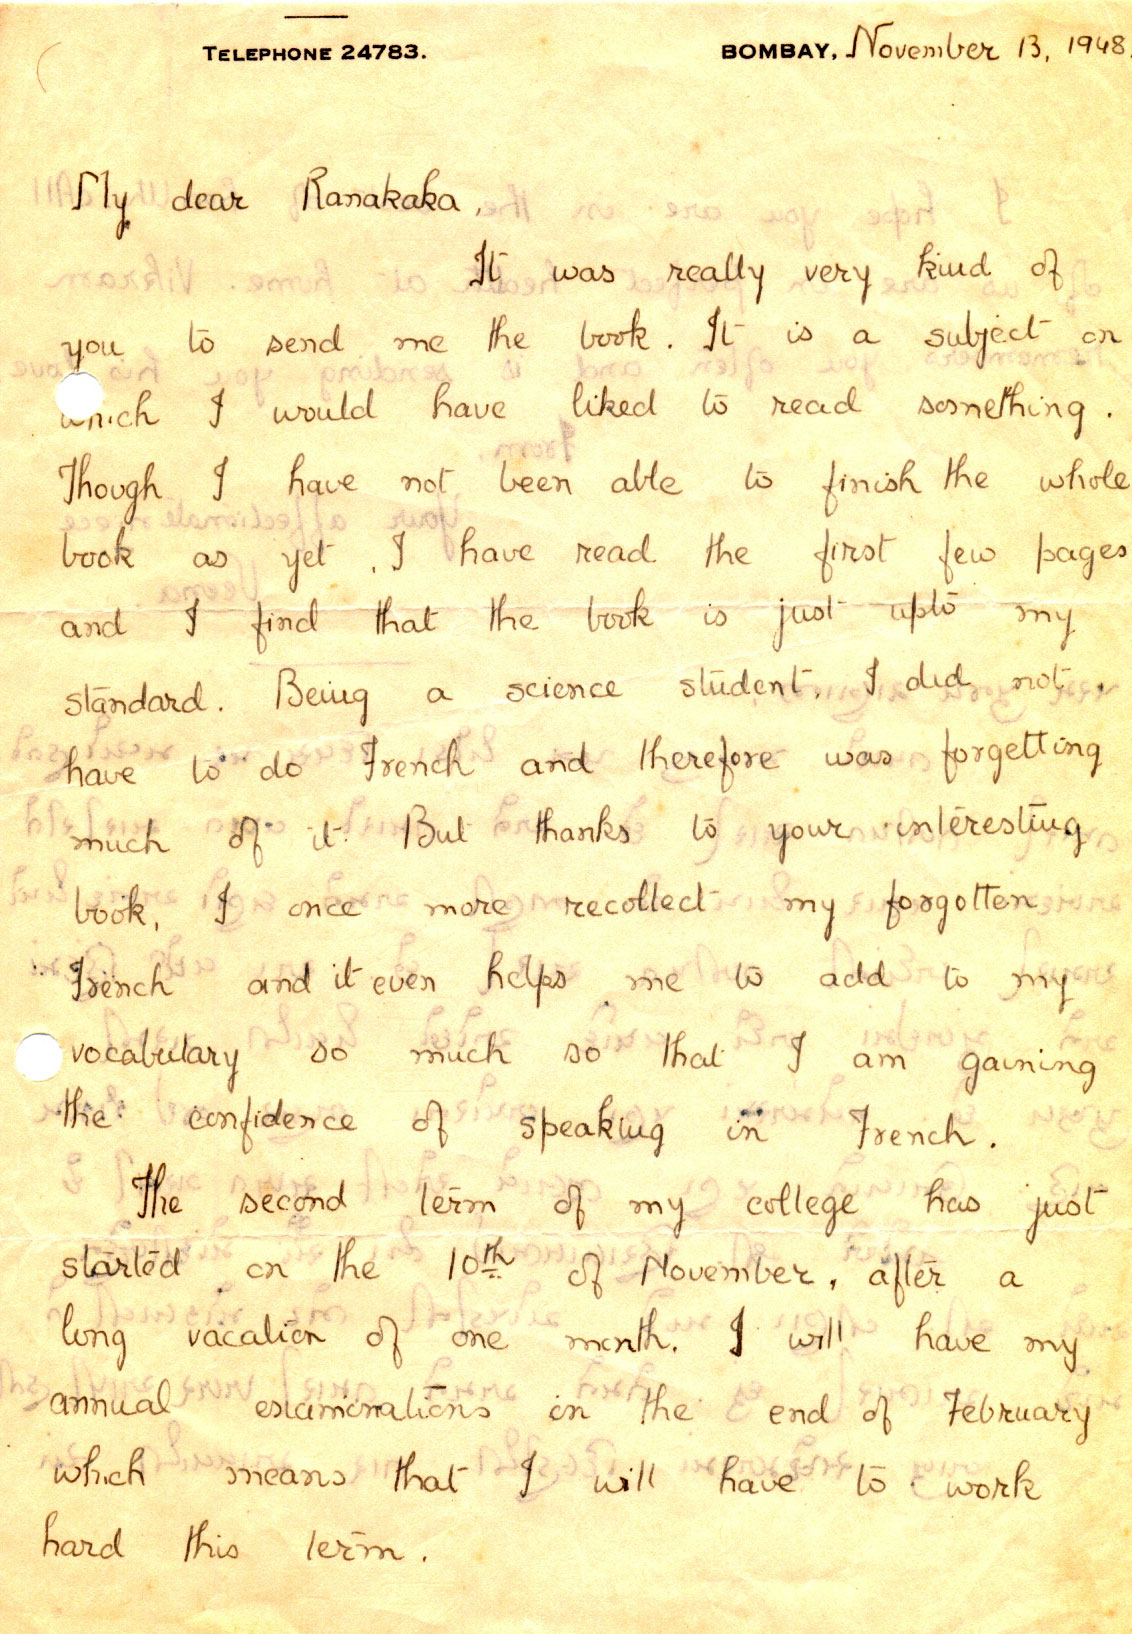 TELEPHONE 24783.
BOMBAY, November 13, 1948.
My dear Ranakaka,
It was really very kind of
you to send me the book. It is a subject on
which I would have liked to read something.
Though I have not been able to finish the whole
book as yet, I have read the first few pages
and I find that the book is just upto my
standard. Being a science student, I did not
have to do French and therefore was forgetting
much of it. But thanks to your interesting
book, I once more recollect my forgotten
French and it even helps me to add to my
vocabulary so much so that I am gaining
the confidence of speaking in French.
The second term of my college has just
started on the 10th of November, after a
long vacation of one month. I will have my
annual examinations in the end of February
which means that I will have to work
hard this term.